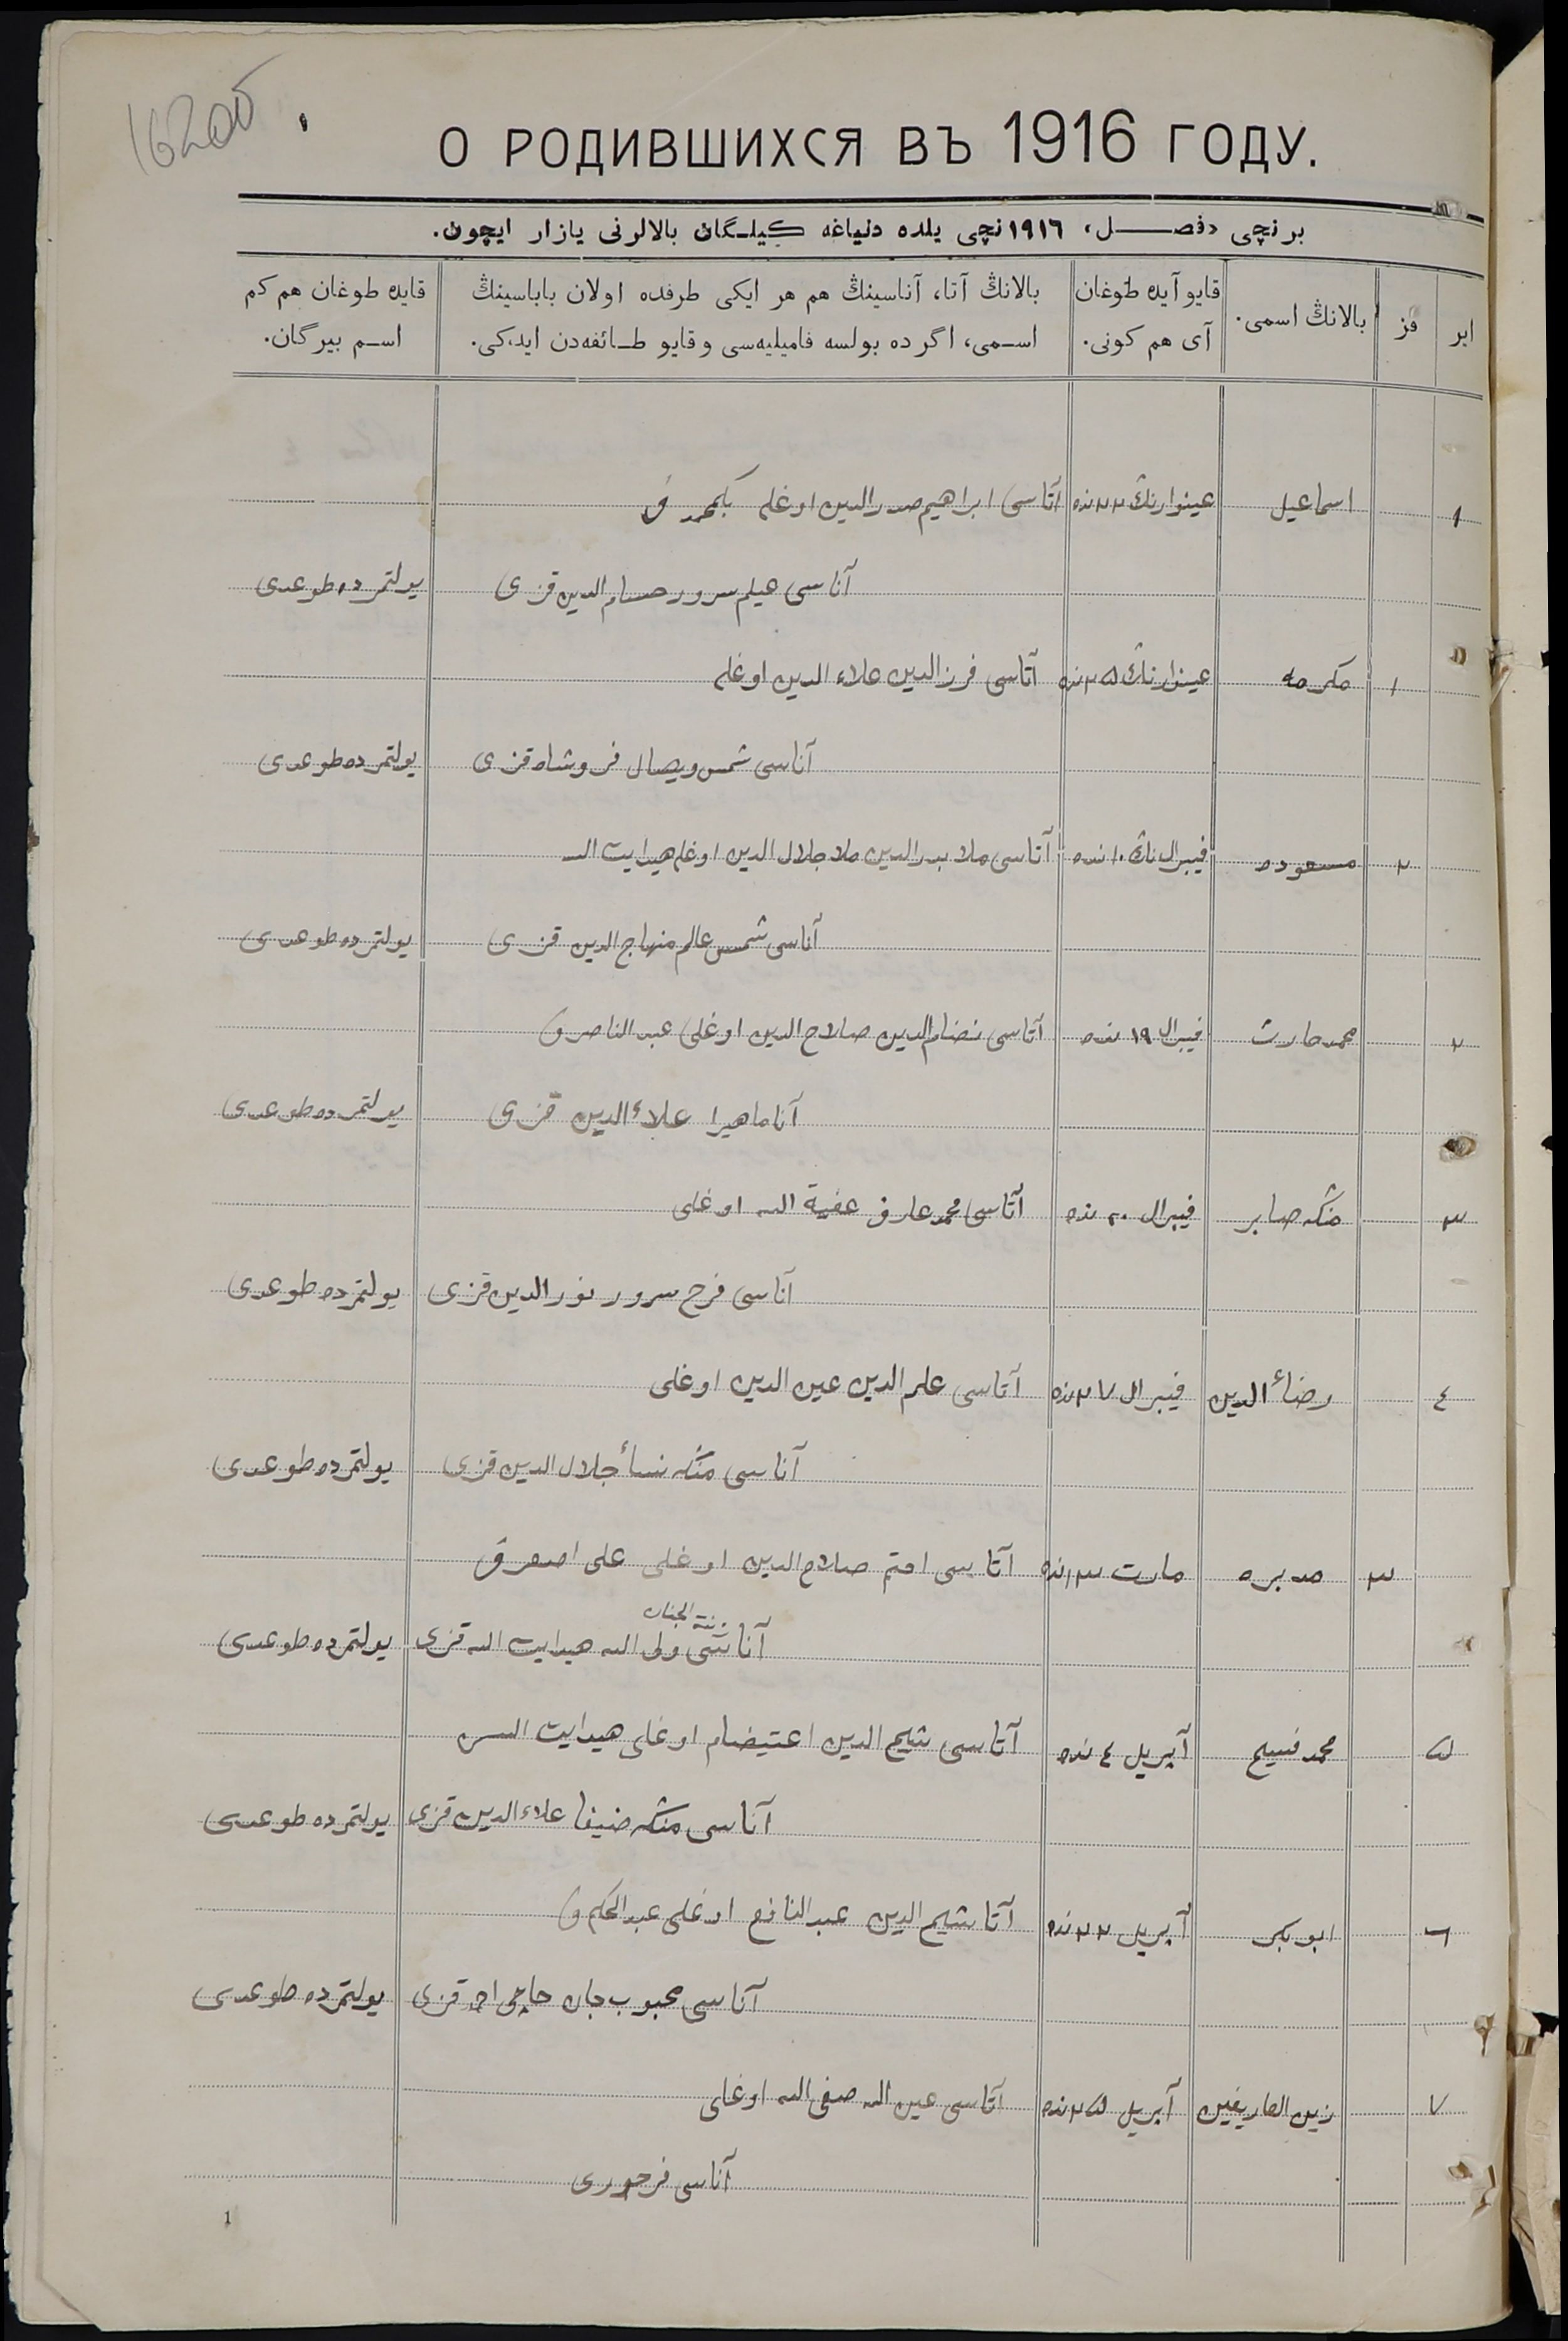 16200
О РОДИВШИХСЯ ВЪ 1916 ГОДУ.
برنچی «فصل» ١٩١٦نچی یلده دنیاغه کیلگان بالالرنی یازار ایچون.
ایر
قز
بالانڭ اسمی.
قایو آیده طوغان
آی هم کونی.
بالانڭ آتا، آناسینڭ هم هر ایکی طرفده اولان باباسینڭ
اسمی، اگرده بولسه فامیلیه‌سی و قایو طائفه‌دن ایدکی.
قایده طوغان هم کم
اسم بیرگان.
١ اسماعیل عینوارنڭ ٢٢نده آتاسی ابراهیم صدرالدین اوغلی
آناسی سرور حسام الدین قزی یولتمرده طوغدی
١ مکرمه عینوارنڭ ٢٥نده آتاسی فرزالدین علاء الدین اوغلی
آناسی شمس ویصال فروشاه قزی یولتمرده طوغدی
٢ مسعوده فیبرال ناڭ ١٠نده آتاسی ملا بدرالدین ملا جلال الدین اوغلی هیدایت الـ
آناسی شمس عالم منهاج الدین قزی یولتمرده طوغدی
٢ محمد حارث فیبرال ١٩ نده آتاسی نضام الدین صلاح الدین اوغلی عبد الناصرف
آنا ماهیرا علاءالدین قزی یولتمرده طوغدی
٣ منکه صابر فیبرال ٢٠ نده آتاسی محمد عارف اوغلی
آناسی فرح سرور نورالدین قزی یولتمرده طوغدی
٤ رضاءالدین فیبرال ٢٧نده آتاسی علم الدین عین الدین اوغلی
آناسی منکه نساء جلال الدین قزی یولتمرده طوغدی
٣ مدبره مارت ١٣نده آتاسی صلاح الدین اوغلی
آناسی ولی الله هیدایت الله قزی یولتمرده طوغدی
٥ محمد فسیح آپریل ٤ نده آتاسی شیح الدین اعتیضام اوغلی هیدایت
آناسی منکه ضیفا علاءالدین قزی یولتمرده طوغدی
٦ ابو بکر آپریل ٢٢نده آتا شیح الدین عبد النافع اوغلی عبدالحکم ف
آناسی محبوب جان حاجی احمد قزی یولتمرده طوغدی
٧ زین العاریفین آپریل ٢٥نده آتاسی عین الله صفی الله اوغلی
آناسی
1